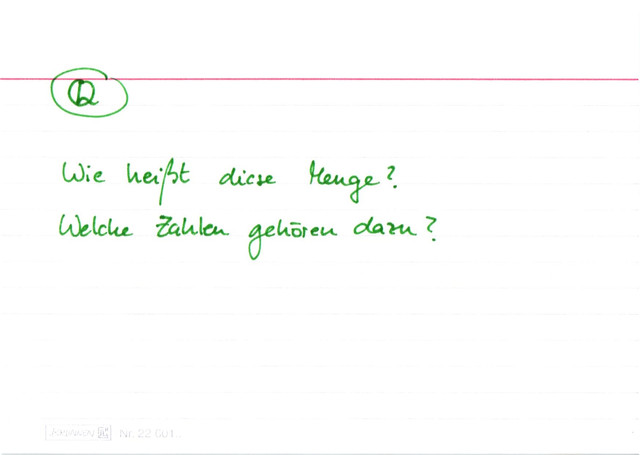 ℚ
Wie heißt diese Menge?
Welche Zahlen gehören dazu?
BRUNNEN Nr. 22 601